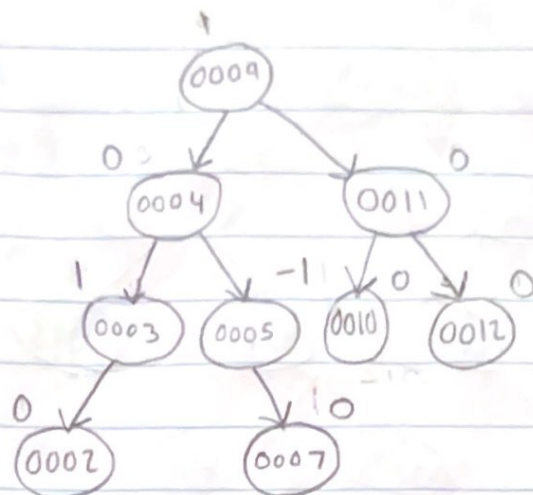 1
0009
0 0
0004 0011
1 -1 0 0
0003 0005 0010 0012
0 0
0002 0007